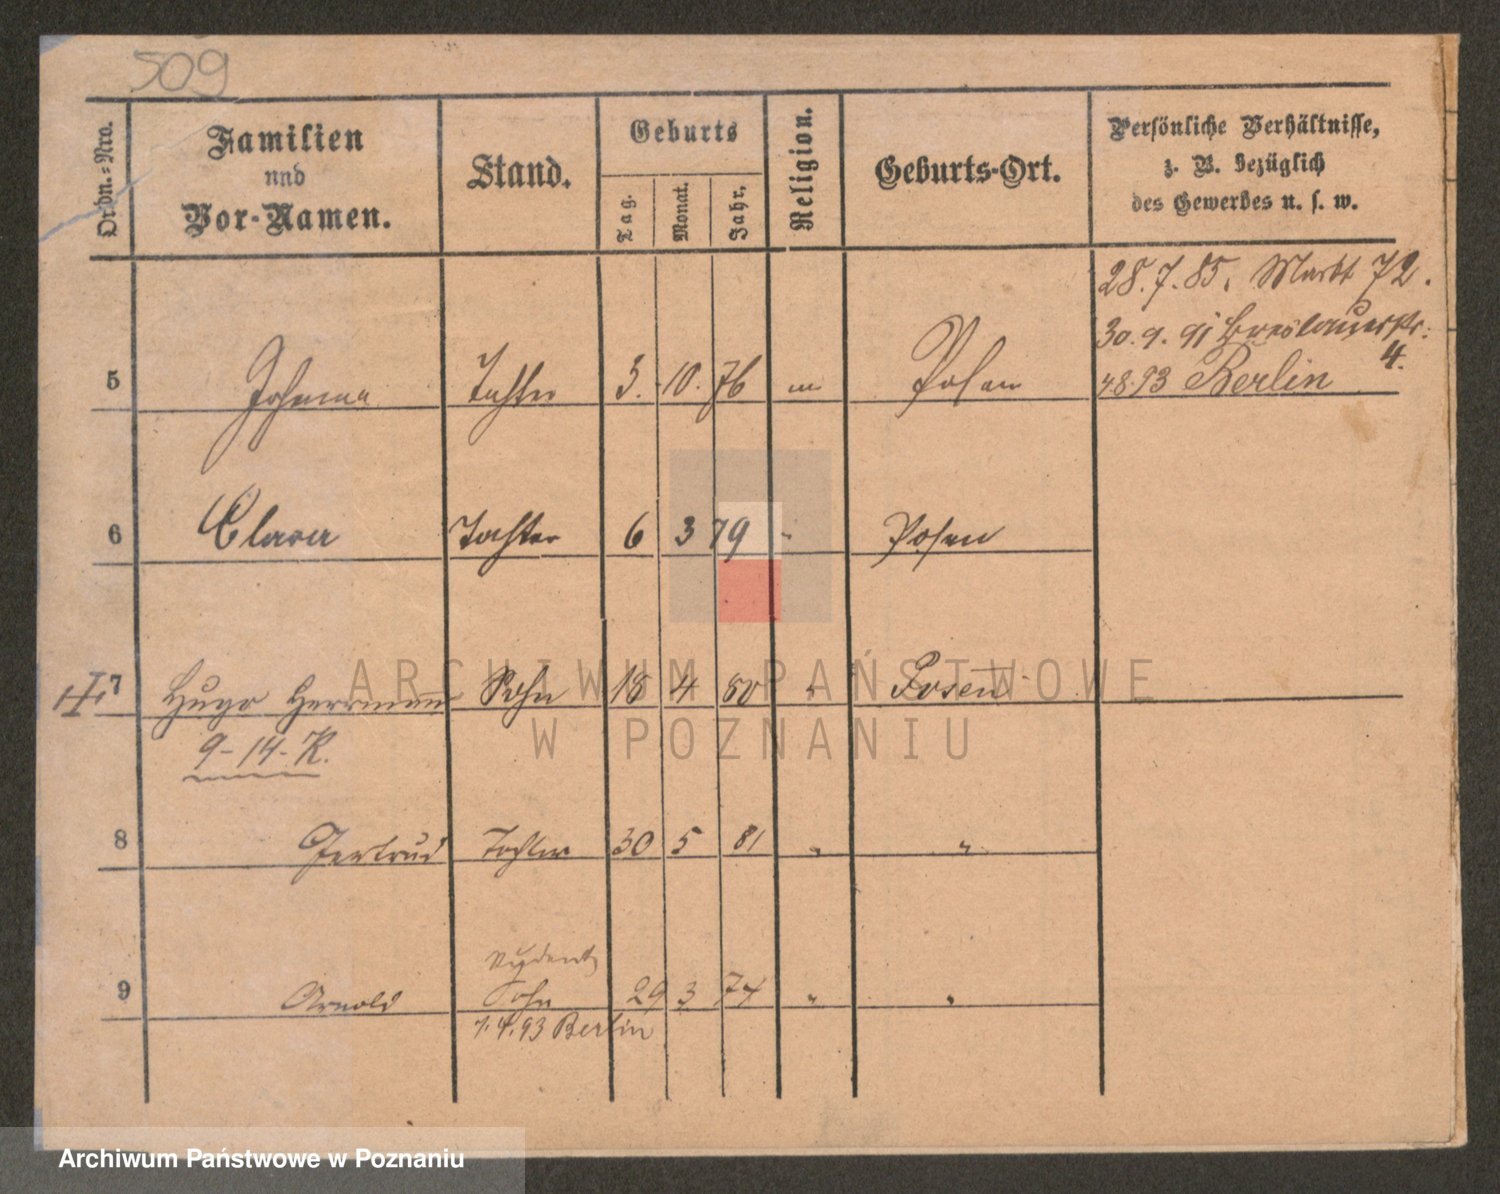 509
Ordn.-Nro.
Familien
und
Vor-Namen.
Stand.
Geburts
Tag.
Monat.
Jahr.
Religion.
Geburts-Ort.
Persönliche Verhältnisse,
z. B. bezüglich
des Gewerbes u. s. w.
28.7.85. Markt 72.
30.9.91 Breslauerstr.
4.
5 Johanna Tochter 3. 10. 76 Posen 4893 Berlin
6 Clara Tochter 6 3 79 " Posen
7 Hugo Herrmann Sohn 18 4 80 " Posen
9-14-K.
8 Gertrud Tochter 30 5 81 " "
Student
9 Arnold Sohn 29 3 74 " "
1.4.93 Berlin
ARCHIWUM PAŃSTWOWE
W POZNANIU
Archiwum Państwowe w Poznaniu